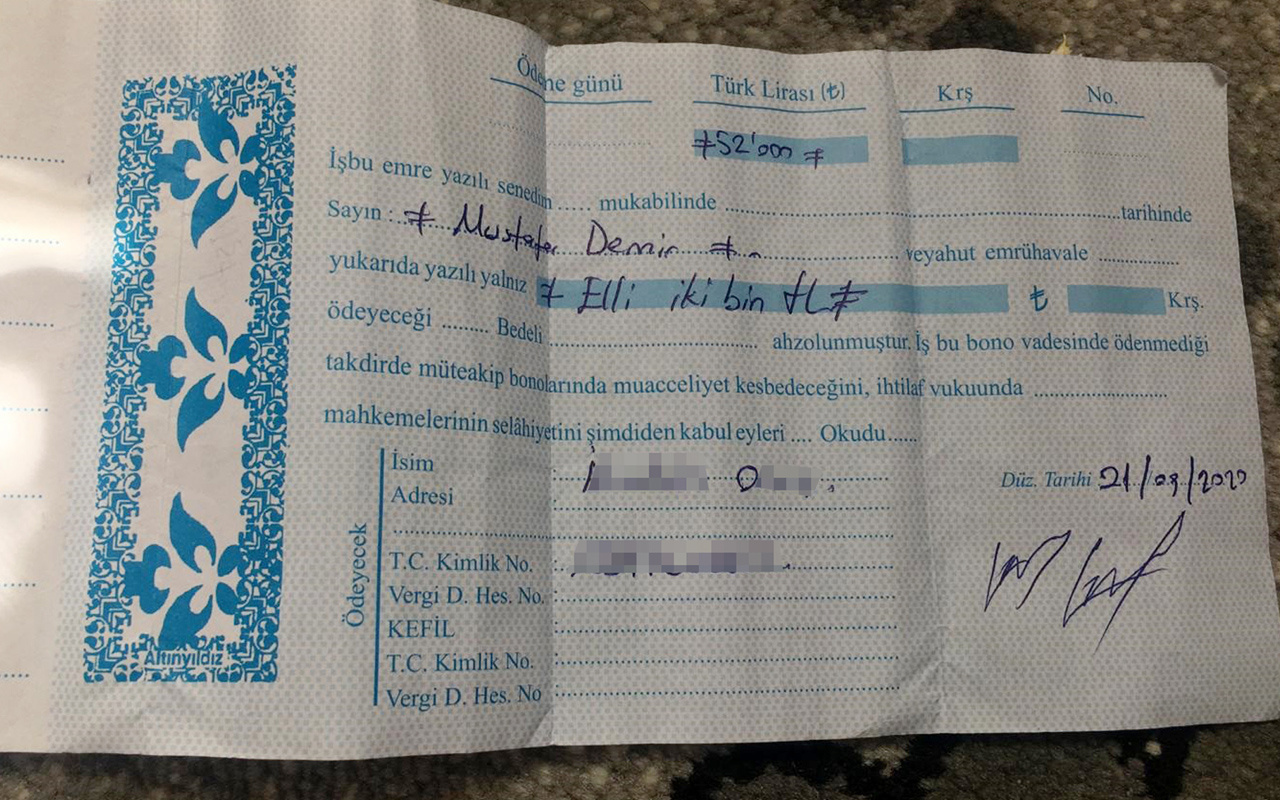 Ödeme günü Türk Lirası (₺) Krş No.
≠52'000≠
İşbu emre yazılı senedim ..... mukabilinde ..... tarihinde
Sayın : ≠ Mustafa Demir ≠ ..... veyahut emrühavale .....
yukarıda yazılı yalnız ≠ Elli iki bin TL≠ ₺ Krş.
ödeyeceği ........ Bedeli ..... ahzolunmuştur. İş bu bono vadesinde ödenmediği
takdirde müteakip bonolarında muacceliyet kesbedeceğini, ihtilaf vukuunda .....
mahkemelerinin selâhiyetini şimdiden kabul eyleri .... Okudu......
Ödeyecek
İsim :
Adresi :
T.C. Kimlik No. :
Vergi D. Hes. No. :
KEFİL :
T.C. Kimlik No. :
Vergi D. Hes. No :
Düz. Tarihi 21/09/2020
Altınyıldız